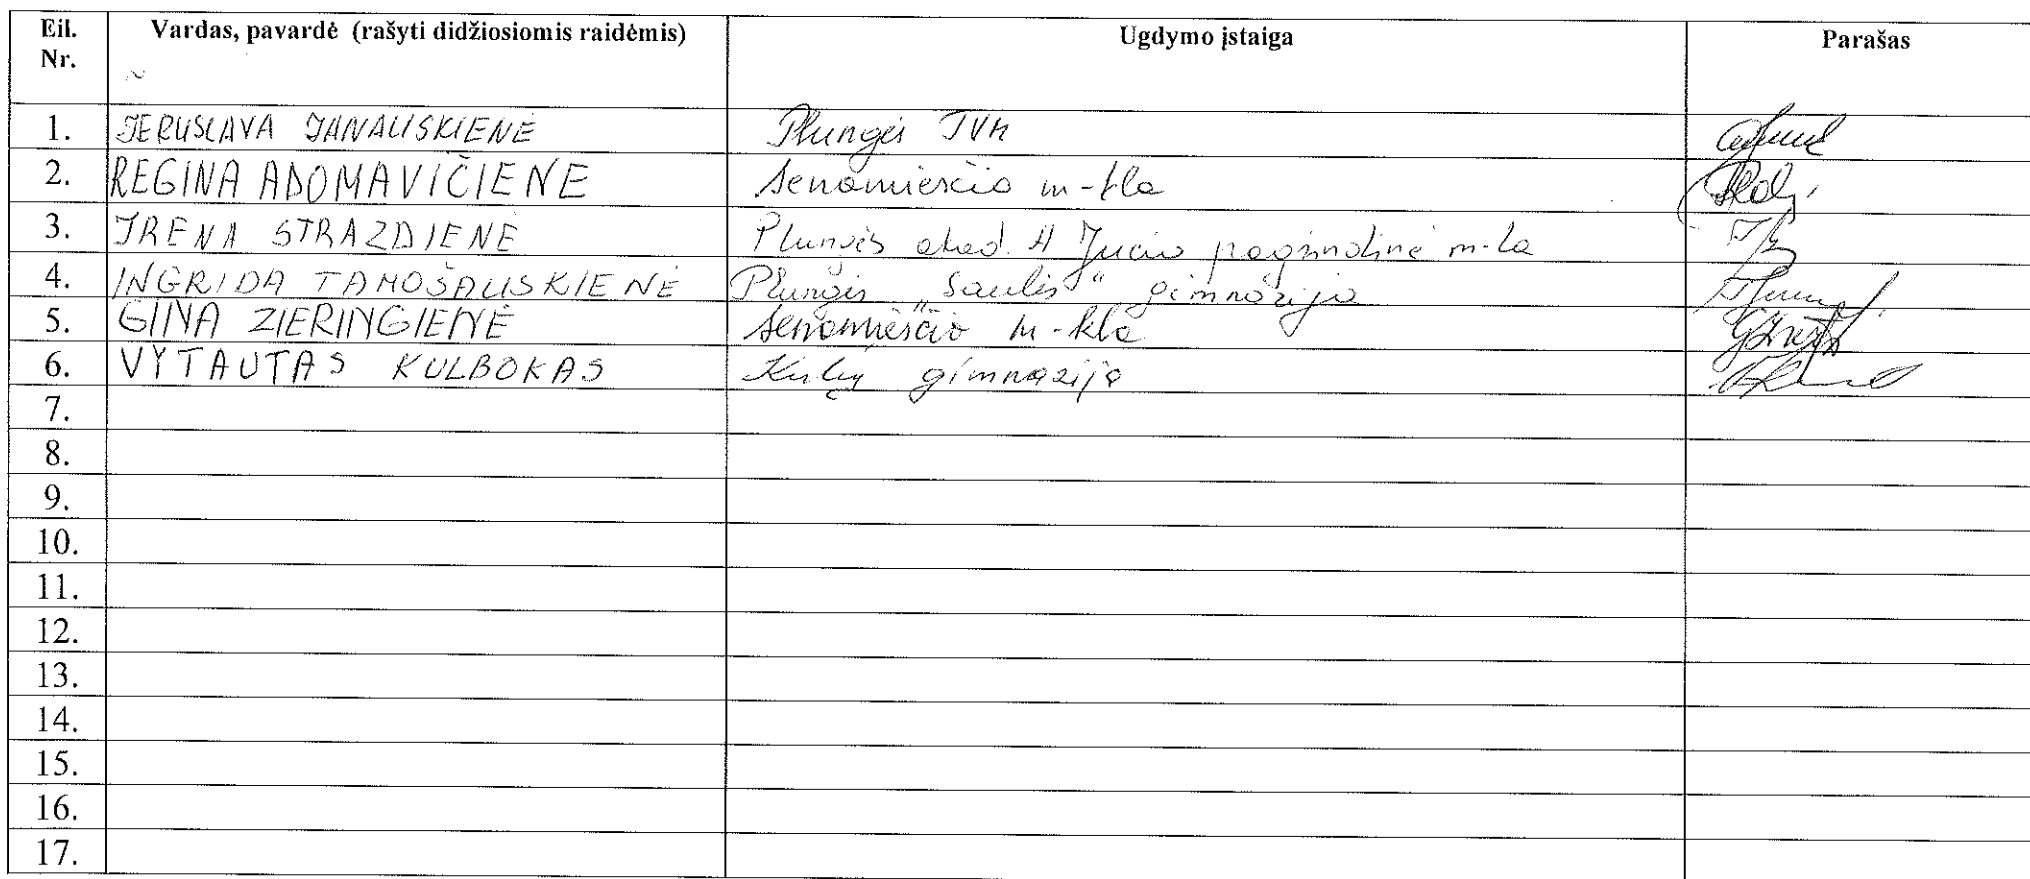 Eil. Nr. Vardas, pavardė (rašyti didžiosiomis raidėmis) Ugdymo įstaiga Parašas
1. JERUSLAVA JANAUSKIENĖ Plungės
2. REGINA ADOMAVIČIENE Senamiesčio m-kla
3. IRENA STRAZDIENĖ Plungės akad. A Jucio pagrindinė m-la
4. INGRIDA TAMOŠAUSKIENĖ Plungės „Saulės“ gimnazija
5. GINA ZIERINGIENĖ Senamiesčio m-kla
6. VYTAUTAS KULBOKAS Kulių gimnazija
7.
8.
9.
10.
11.
12.
13.
14.
15.
16.
17.